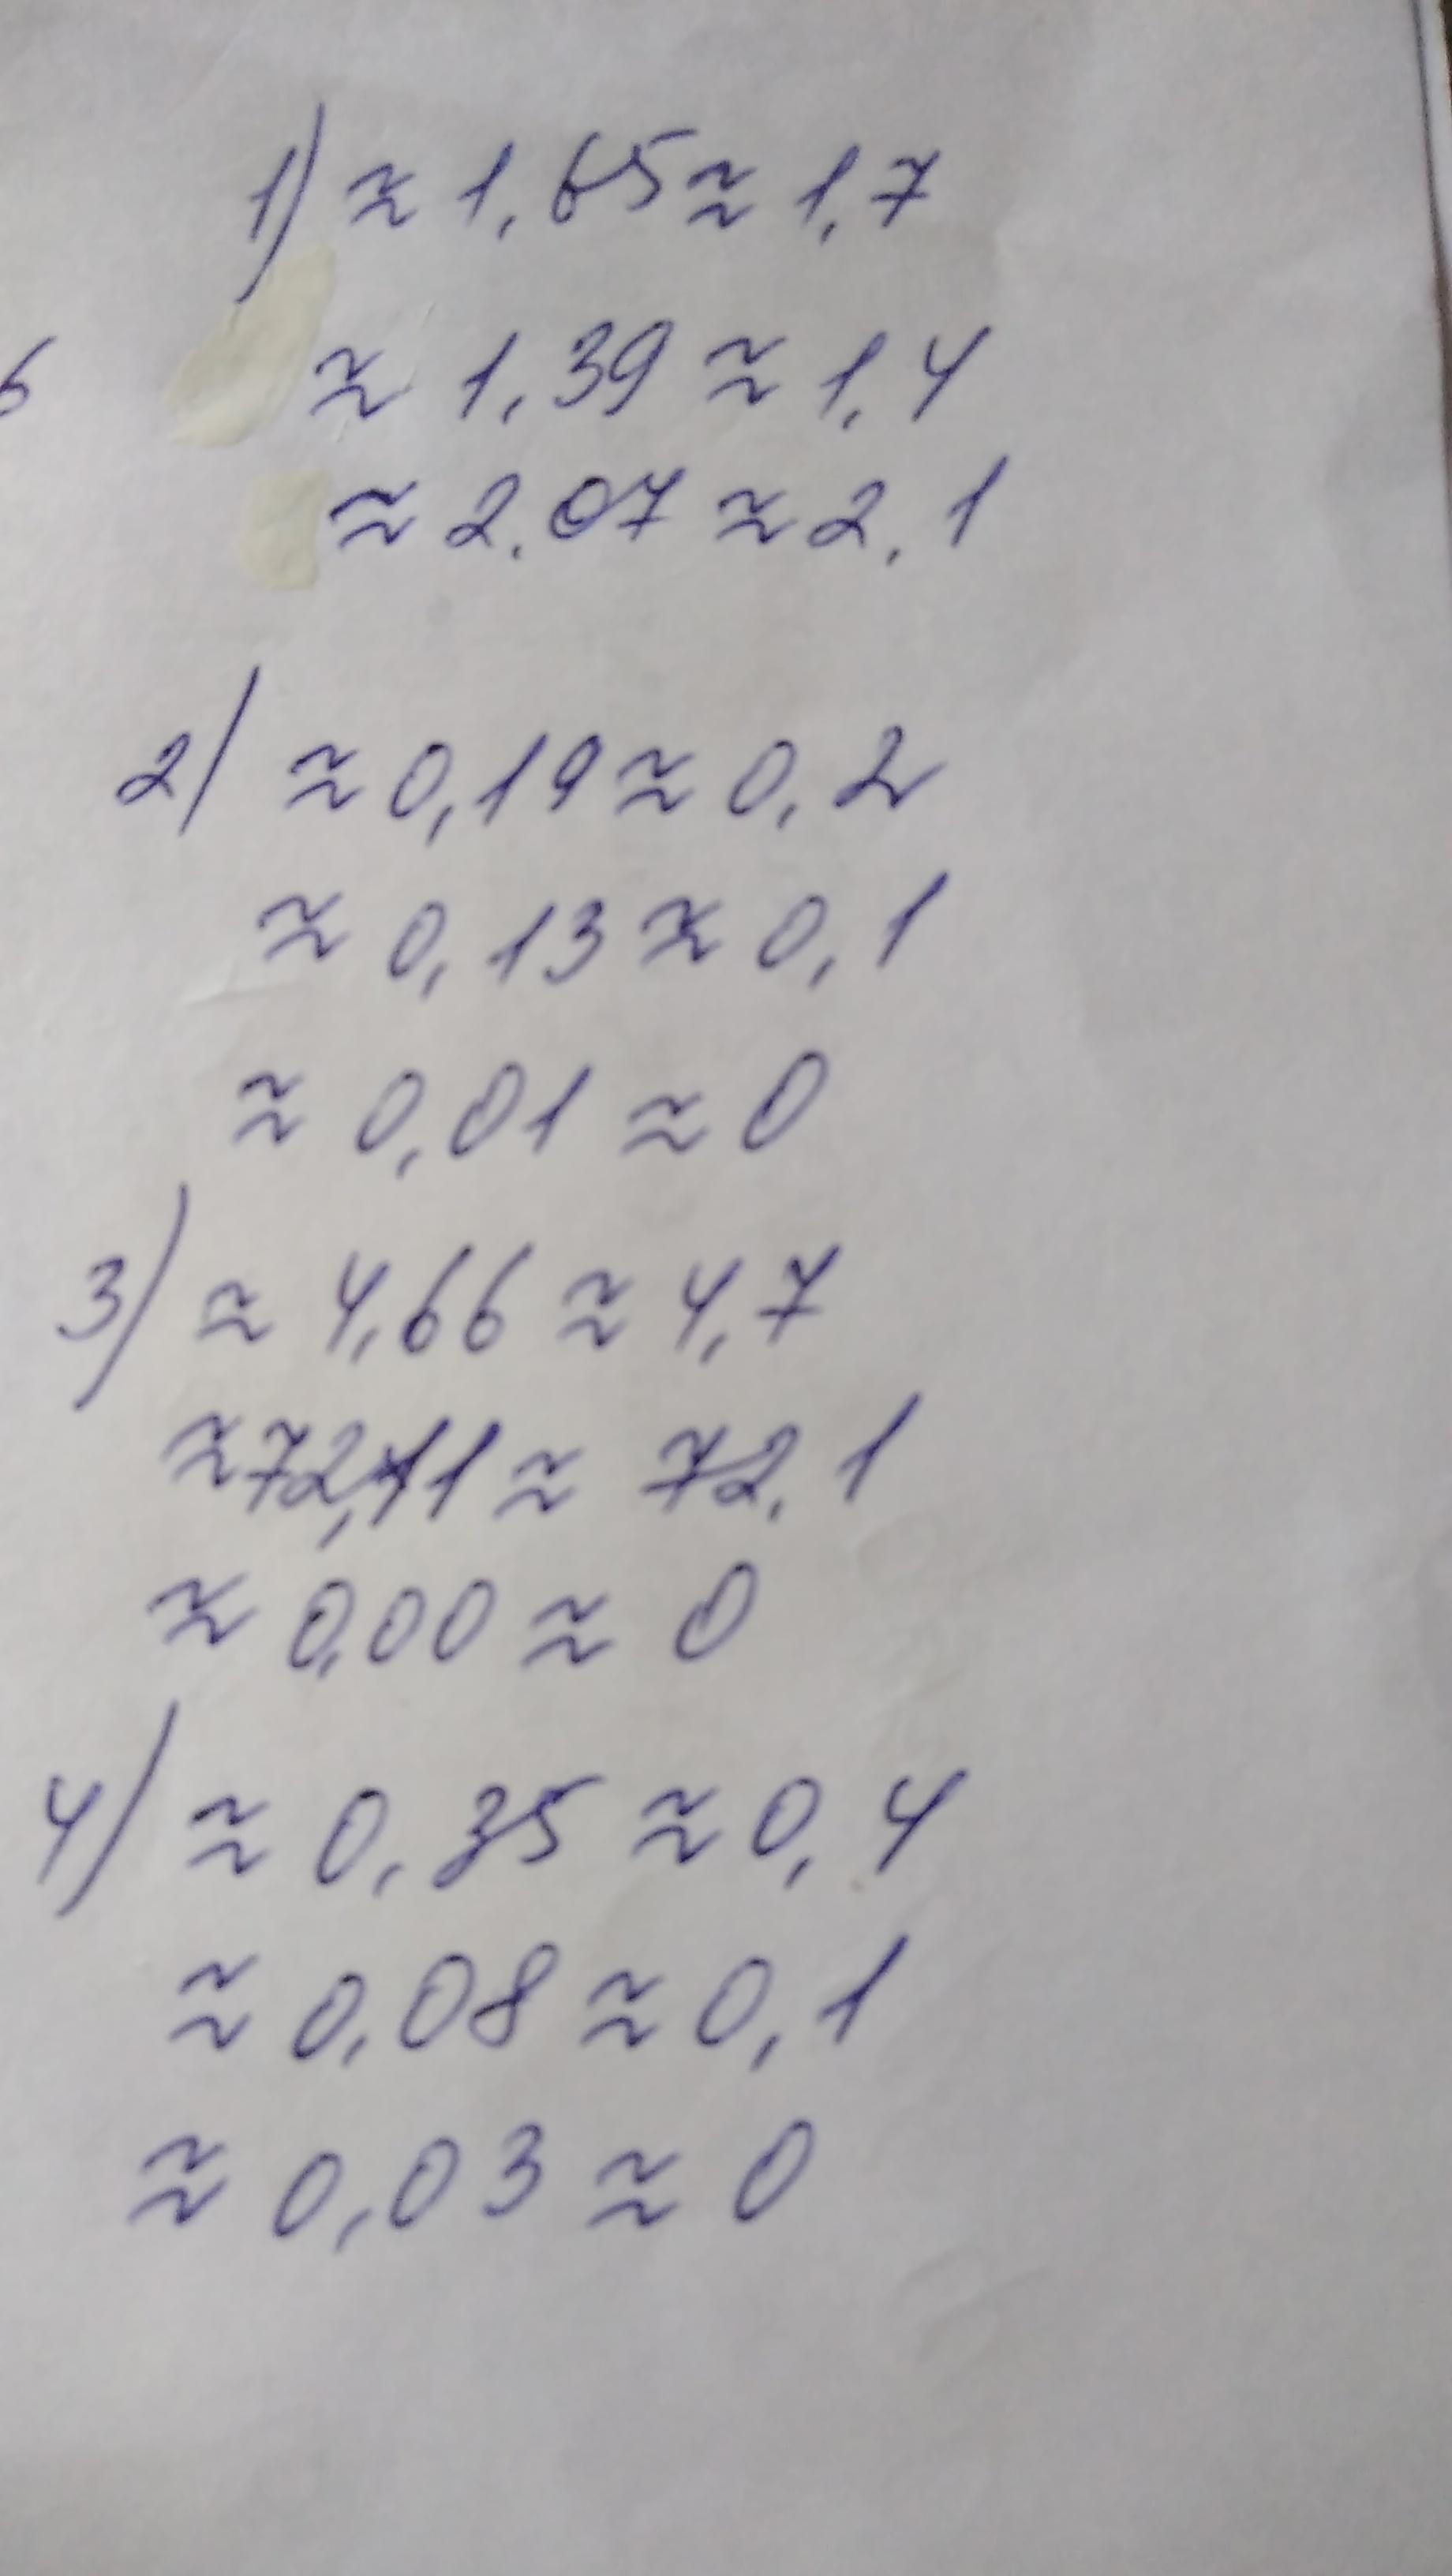 1) ≈ 1,65 ≈ 1,7
6 ≈ 1,39 ≈ 1,4
≈ 2,07 ≈ 2,1
2) ≈ 0,19 ≈ 0,2
≈ 0,13 ≈ 0,1
≈ 0,01 ≈ 0
3) ≈ 4,66 ≈ 4,7
≈ 72,11 ≈ 72,1
≈ 0,00 ≈ 0
4) ≈ 0,35 ≈ 0,4
≈ 0,08 ≈ 0,1
≈ 0,03 ≈ 0